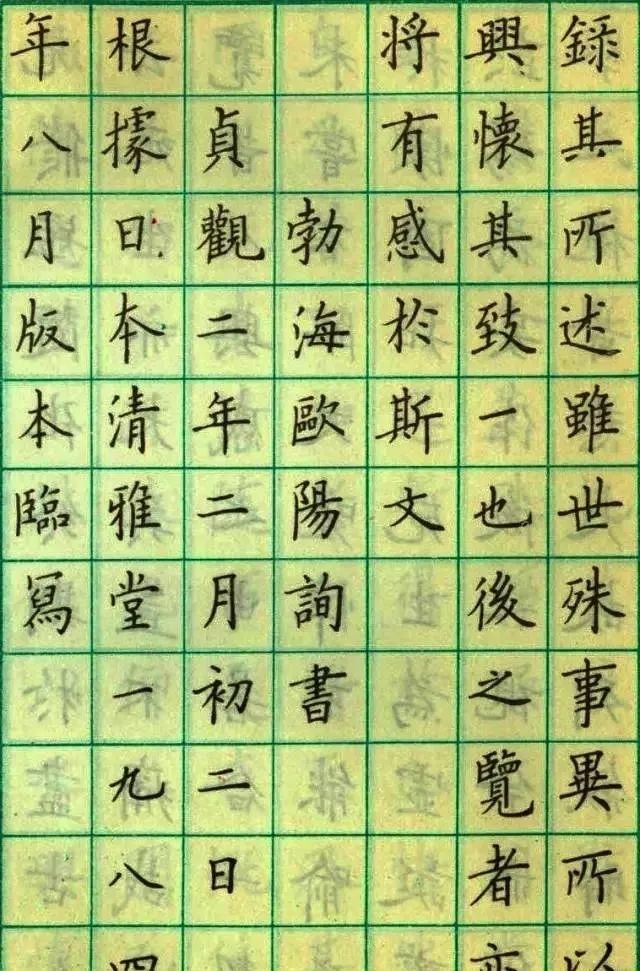 錄其所述雖世殊事異所以
興懷其致一也後之覽者亦
将有感於斯文
勃海歐陽詢書
貞觀二年二月初二日
根據日本清雅堂一九八四
年八月版本臨寫